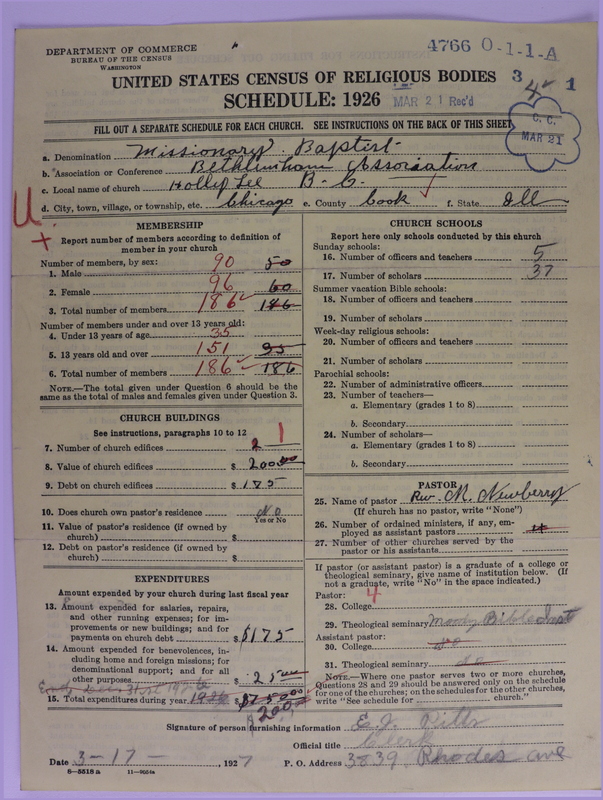 DEPARTMENT OF COMMERCE
BUREAU OF THE CENSUS
WASHINGTON
4766 0-1-1-A
UNITED STATES CENSUS OF RELIGIOUS BODIES 3 4 1
SCHEDULE: 1926 MAR 21 Rec'd
C. C.
MAR 21
FILL OUT A SEPARATE SCHEDULE FOR EACH CHURCH. SEE INSTRUCTIONS ON THE BACK OF THIS SHEET
a. Denomination Missionary Baptist
b. Association or Conference Bethlimham Association
c. Local name of church Holly Lee B. C.
d. City, town, village, or township, etc. Chicago e. County Cook f. State Ill
U.
MEMBERSHIP
Report number of members according to definition of member in your church
Number of members, by sex:
1. Male 90 50
2. Female 96 60
3. Total number of members 186 186
Number of members under and over 13 years old:
4. Under 13 years of age 35
5. 13 years old and over 151 35
6. Total number of members 186 186
NOTE.—The total given under Question 6 should be the same as the total of males and females given under Question 3.
CHURCH BUILDINGS
See instructions, paragraphs 10 to 12
7. Number of church edifices 2 1
8. Value of church edifices $ 200.00
9. Debt on church edifices $ 175
10. Does church own pastor's residence No
Yes or No
11. Value of pastor's residence (if owned by church) $
12. Debt on pastor's residence (if owned by church) $
EXPENDITURES
Amount expended by your church during last fiscal year
13. Amount expended for salaries, repairs, and other running expenses; for improvements or new buildings; and for payments on church debt $175
14. Amount expended for benevolences, including home and foreign missions; for denominational support; and for all other purposes 25.00
15. Total expenditures during year 1926 $ 200.00
CHURCH SCHOOLS
Report here only schools conducted by this church
Sunday schools:
16. Number of officers and teachers 5
17. Number of scholars 37
Summer vacation Bible schools:
18. Number of officers and teachers
19. Number of scholars
Week-day religious schools:
20. Number of officers and teachers
21. Number of scholars
Parochial schools:
22. Number of administrative officers
23. Number of teachers—
a. Elementary (grades 1 to 8)
b. Secondary
24. Number of scholars—
a. Elementary (grades 1 to 8)
b. Secondary
PASTOR
25. Name of pastor Rev. M. Newberry
(If church has no pastor, write "None")
26. Number of ordained ministers, if any, employed as assistant pastors 4
27. Number of other churches served by the pastor or his assistants
If pastor (or assistant pastor) is a graduate of a college or theological seminary, give name of institution below. (If not a graduate, write "No" in the space indicated.)
Pastor: 4
28. College
29. Theological seminary Moody Bible Inst
Assistant pastor:
30. College do
31. Theological seminary do
NOTE.—Where one pastor serves two or more churches, Questions 28 and 29 should be answered only on the schedule for one of the churches; on the schedules for the other churches, write "See schedule for church."
Signature of person furnishing information E. J. Pitts
Official title Clerk
Date 3-17- , 1927 P. O. Address 3839 Rhodes ave
8—5518a 11—9054a